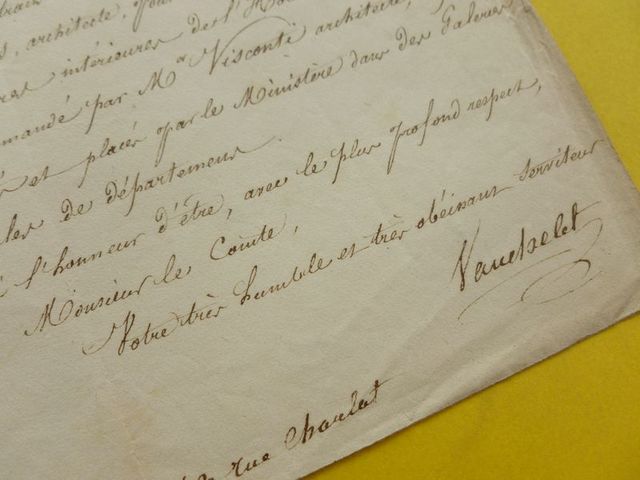 architecte, pour
intérieures de l'
mandé par Mr Visconti architecte,
et placés par le Ministère dans des Galeries
de département.
l'honneur d'être, avec le plus profond respect,
Monsieur le Comte,
Votre très humble et très obéissant serviteur
Vauchelet
rue Chaulat